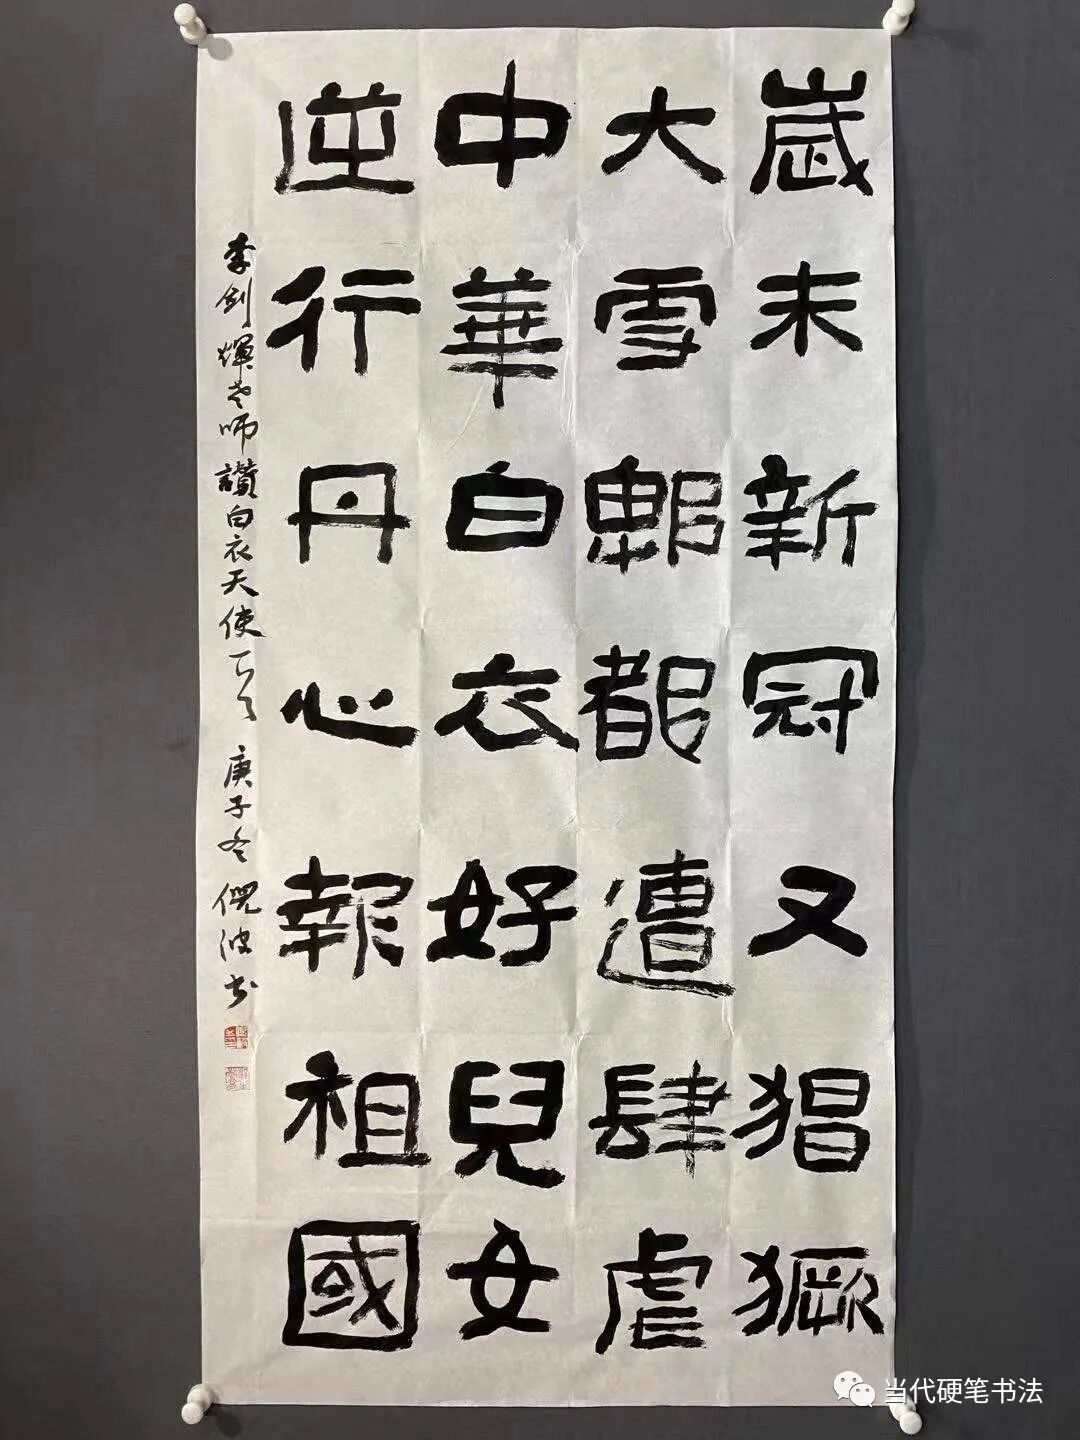 嵗末新冠又猖獗
大雪郫都遭肆虐
中華白衣好兒女
逆行丹心報祖國
李剑輝老师讚白衣天使一首 庚子冬 倪波书
当代硬笔书法